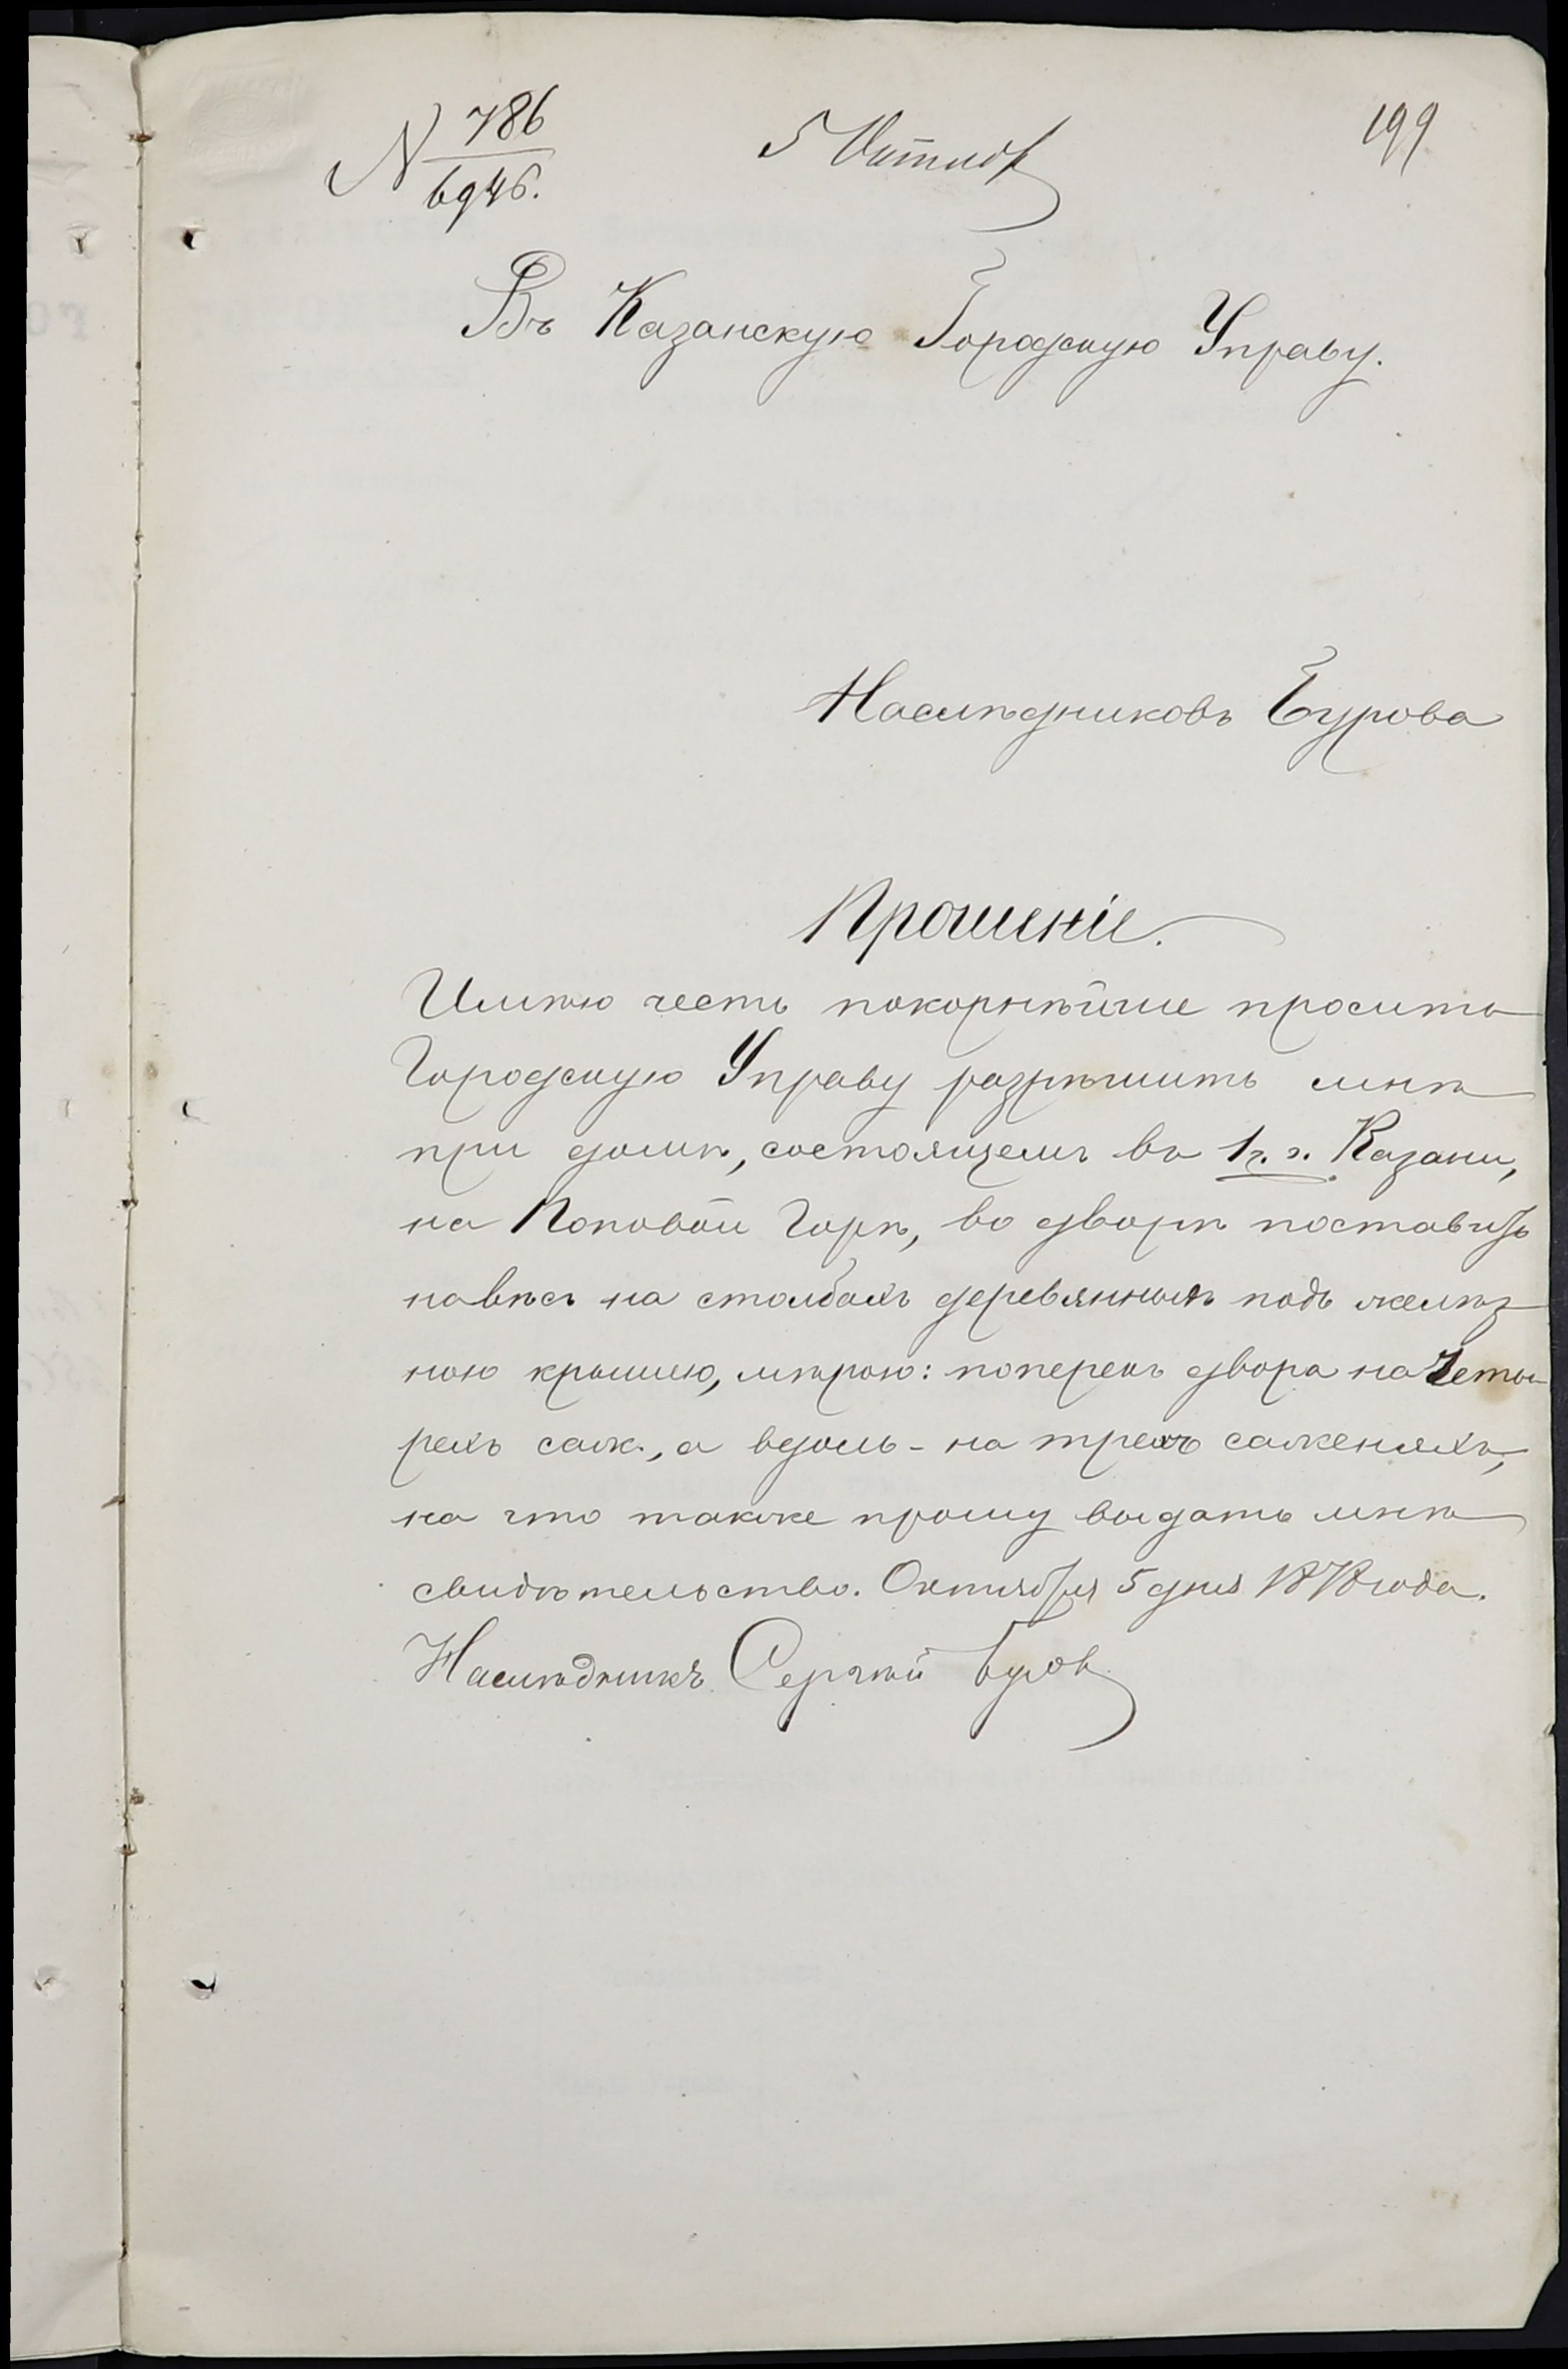 N 786
6946.
5 Октяб
199
Въ Казанскую Городскую Управу.
Наслѣдниковъ Бурова
Прошеніе.
Имѣю честь покорнѣйше просить
Городскую Управу разрѣшить мнѣ
при домѣ, состоящемъ въ 1 ч. г. Казани,
на Поповой Горѣ, во дворѣ поставить
навѣсъ на столбахъ деревянныхъ подъ желѣз
ною крышею, мѣрою: поперекъ двора на Четы
рехъ саж., а вдоль - на трехъ саженяхъ,
на что также прошу выдать мнѣ
свидѣтельство. Октября 5 дня 1878 года.
Наслѣдникъ Сергѣй Буров